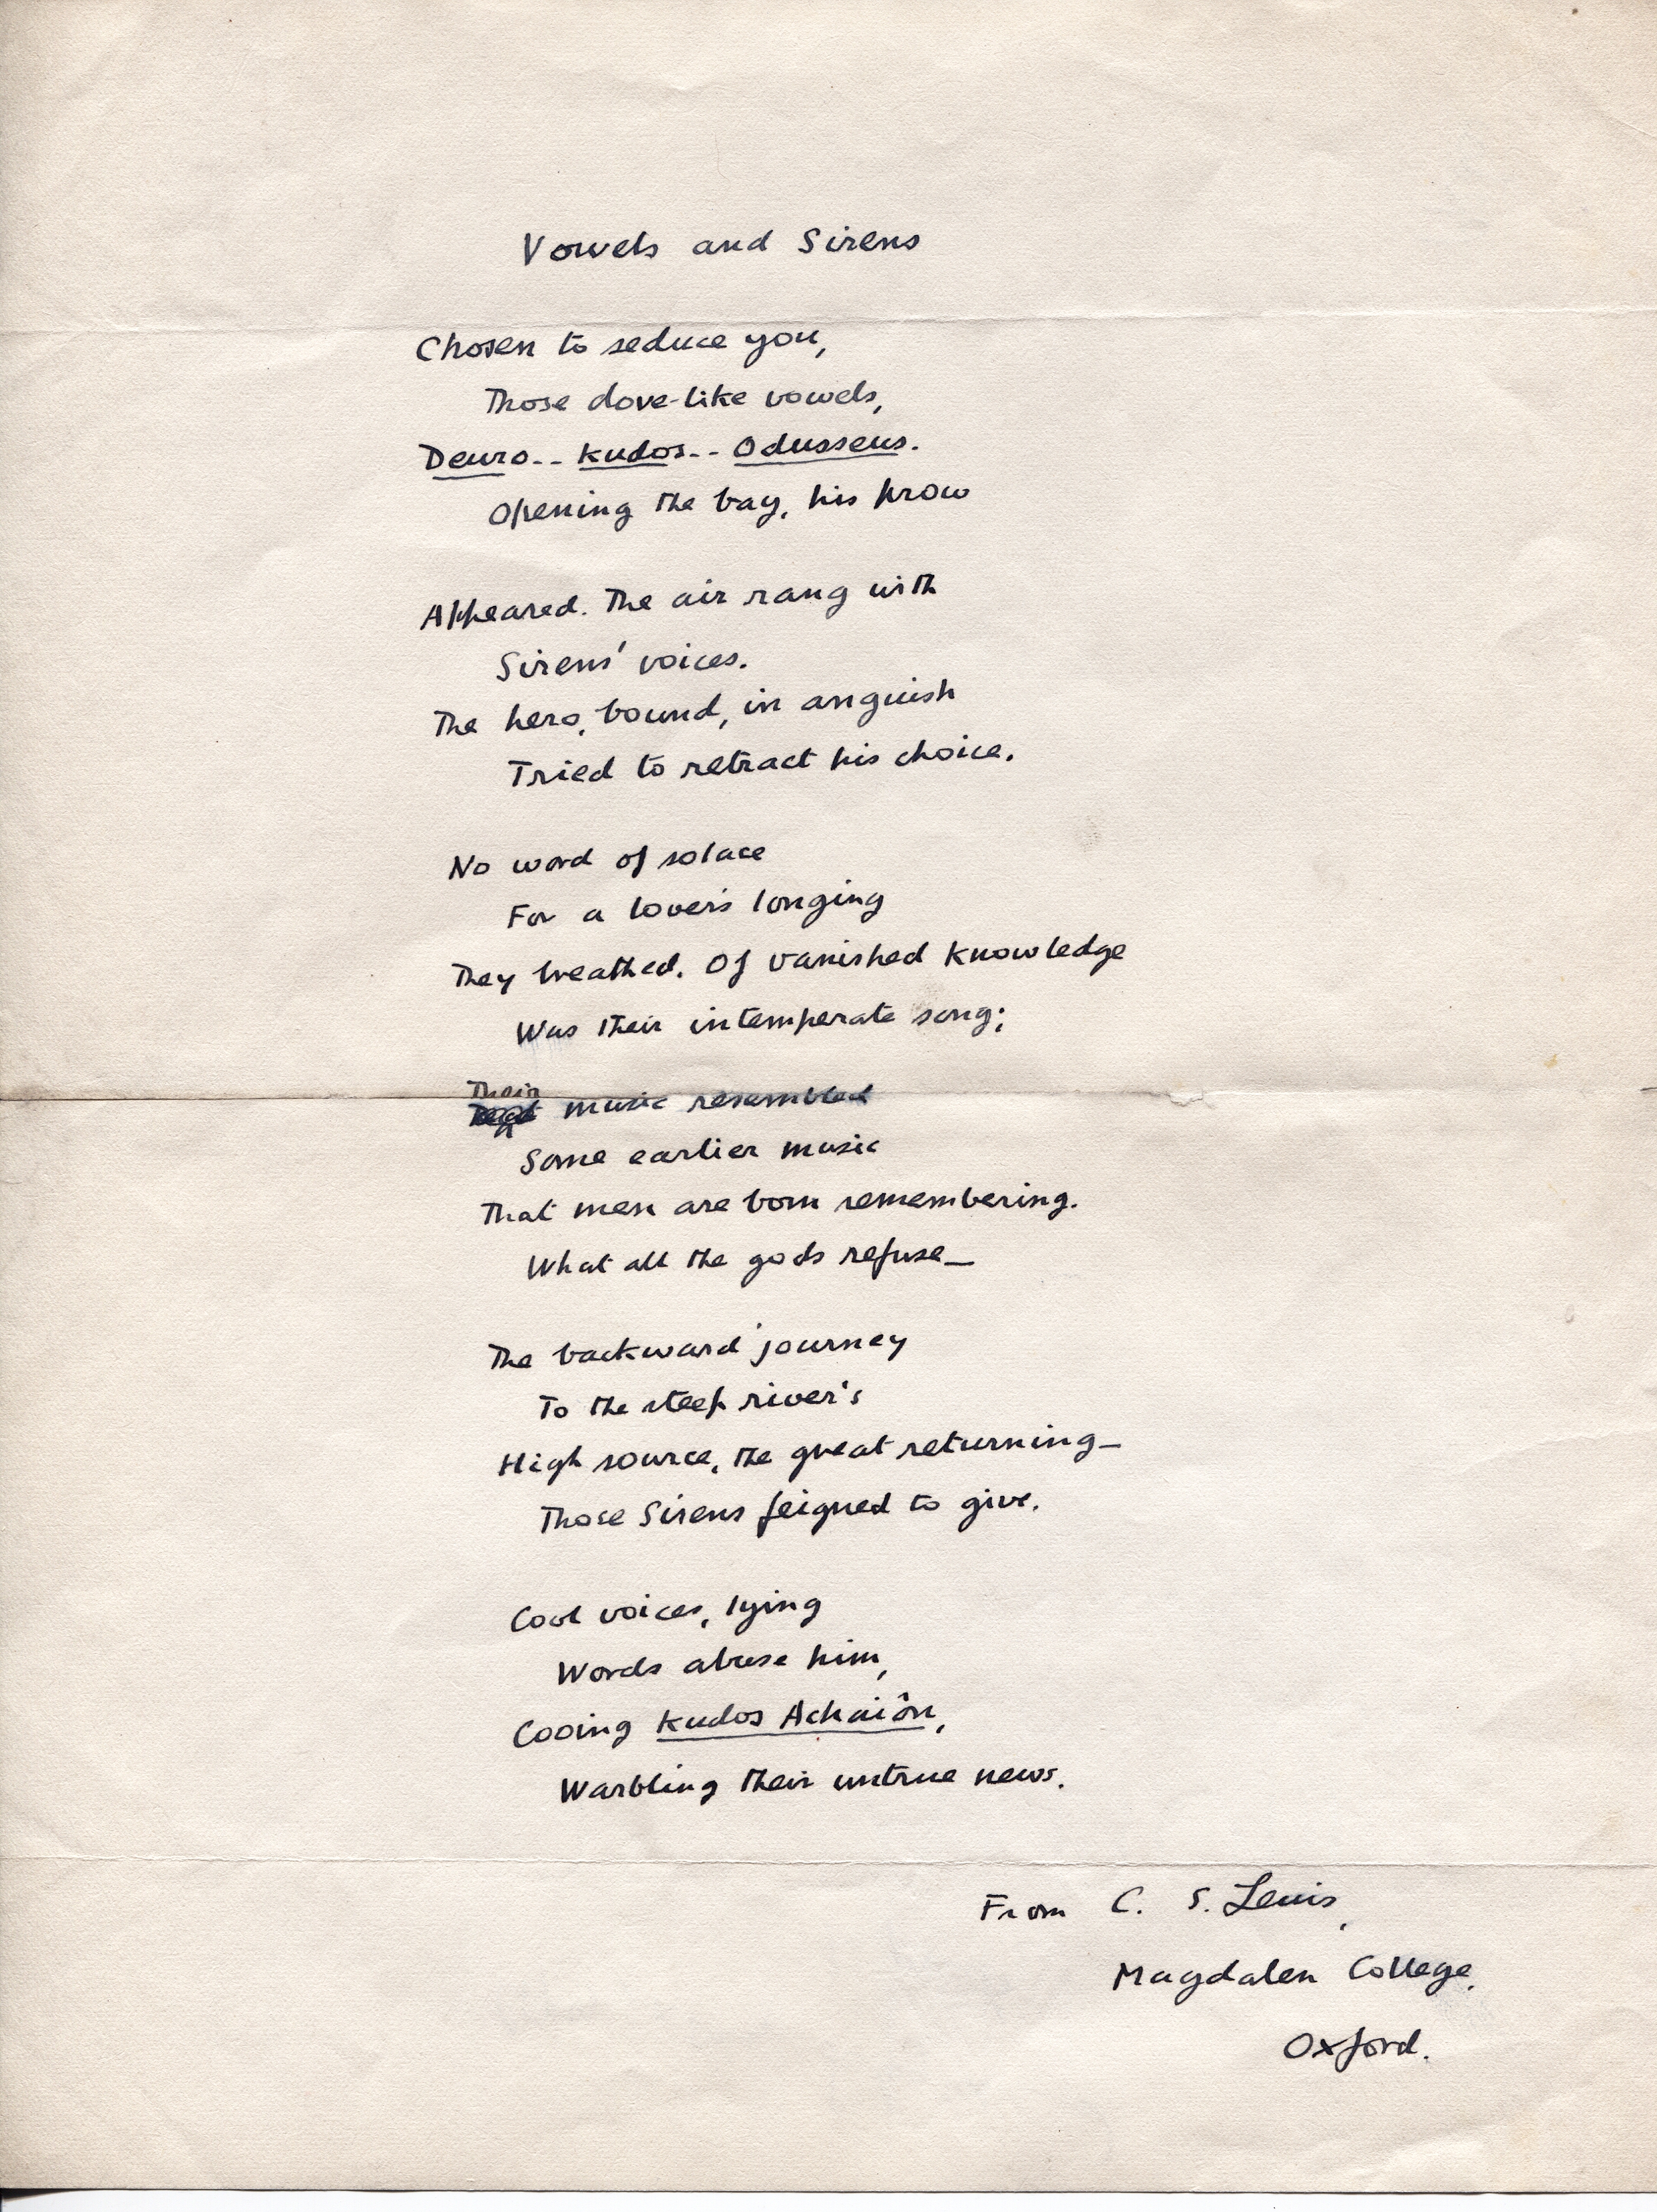 Vowels and Sirens
Chosen to seduce you,
Those dove-like vowels,
Deuro-- kudos-- Odusseus.
Opening the bay, his prow
Appeared. The air rang with
Sirens' voices.
The hero, bound, in anguish
Tried to retract his choice.
No word of solace
For a lover's longing
They breathed. Of vanished knowledge
Was their intemperate song;
Their
music resembled
Some earlier music
That men are born remembering.
What all the gods refuse—
The backward journey
To the steep river's
High source, the great returning—
Those Sirens feigned to give.
Cool voices, lying
Words abuse him,
Cooing kudos Achaiôn,
Warbling their untrue news.
From C. S. Lewis,
Magdalen College,
Oxford.